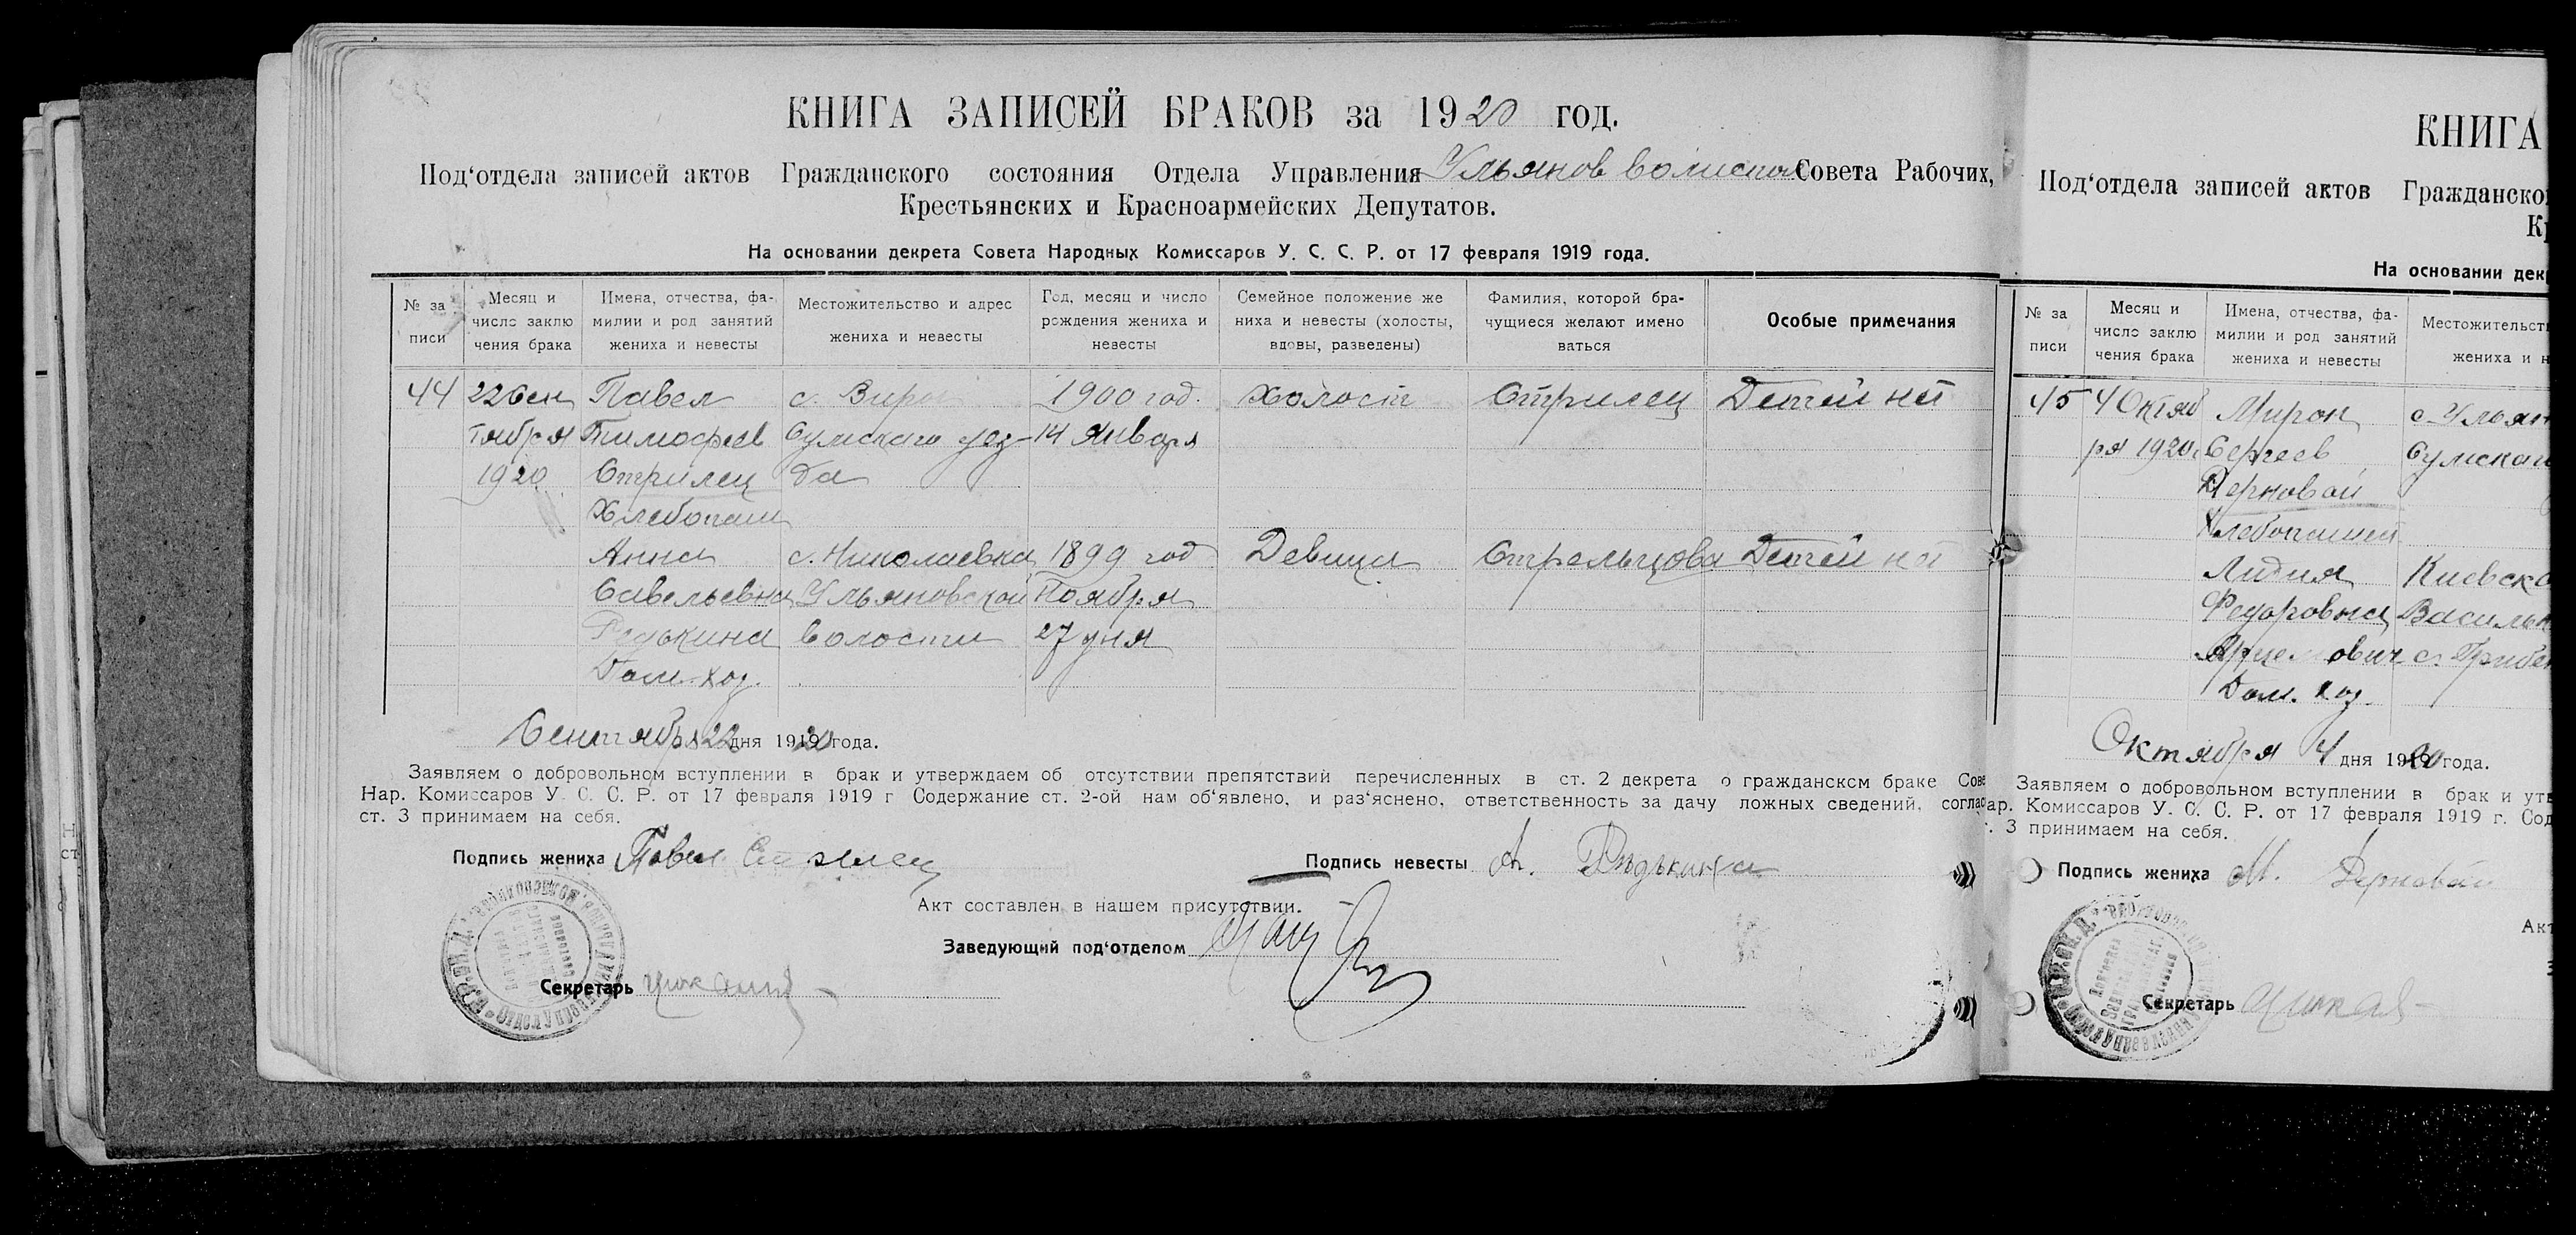 КНИГА ЗАПИСЕЙ БРАКОВ за 1920 год.
Под‘отдела записей актов Гражданского состояния Отдела Управления Ульянов волиспол Совета Рабочих,
Крестьянских и Красноармейских Депутатов.
На основании декрета Совета Народных Комиссаров У. С. С. Р. от 17 февраля 1919 года.
№ за
писи
Месяц и
число заклю
чения брака
Имена, отчества, фа-
милии и род занятий
жениха и невесты
Местожительство и адрес
жениха и невесты
Год, месяц и число
рождения жениха и
невесты
Семейное положение же
ниха и невесты (холосты,
вдовы, разведены)
Фамилия, которой бра-
чущиеся желают имено
ваться
Особые примечания
44
22 Сен
тября
1920
Павел
Тимофеев
Стрилец
Хлебопаш
Анна
Савельевна
Редькина
Дом. хоз.
с. Виры
Сумского уез-
да
с. Николаевка
Ульяновской
волости
1900 год.
14 Января
1899 год
Ноября
27 дня
Холост
Девица
Стрилец
Стрельцова
Детей нет
Детей нет
Сентября 22 дня 1920 года.
Заявляем о добровольном вступлении в брак и утверждаем об отсутствии препятствий перечисленных в ст. 2 декрета о гражданском браке Сове
Нар. Комиссаров У. С. С. Р. от 17 февраля 1919 г Содержание ст. 2-ой нам об‘явлено, и раз‘яснено, ответственность за дачу ложных сведений, соглас
ст. 3 принимаем на себя.
Подпись жениха Павел Стрилец
Подпись невесты А. Редькина
Акт составлен в нашем присутствии.
Заведующий под‘отделом
Секретарь
КНИГА
Под‘отдела записей актов Гражданско
К
На основании дек
№ за
писи
Месяц и
число заклю
чения брака
Имена, отчества, фа-
милии и род занятий
жениха и невесты
Местожительст
жениха и н
45
4 Октяб
ря 1920
Мирон
Сергеев
Дерновой
Хлебопашец
Лидия
Федоровна
Дом. хоз.
с. Ульян
Сумского
Киевско
Васильк
Октября 4 дня 1920 года.
Заявляем о добровольном вступлении в брак и утв
ар. Комиссаров У. С. С. Р. от 17 февраля 1919 г. Сод
. 3 принимаем на себя.
Подпись жениха М. Дерновой
Акт
Секретарь